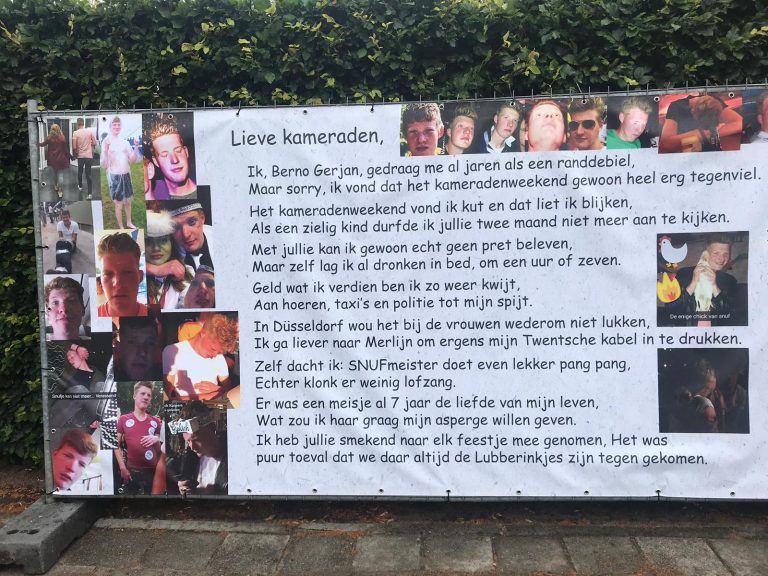 Lieve kameraden,
Ik, Berno Gerjan, gedraag me al jaren als een randdebiel,
Maar sorry, ik vond dat het kameradenweekend gewoon heel erg tegenviel.
Het kameradenweekend vond ik kut en dat liet ik blijken,
Als een zielig kind durfde ik jullie twee maand niet meer aan te kijken.
Met jullie kan ik gewoon echt geen pret beleven,
Maar zelf lag ik al dronken in bed, om een uur of zeven.
Geld wat ik verdien ben ik zo weer kwijt,
Aan hoeren, taxi's en politie tot mijn spijt.
In Düsseldorf wou het bij de vrouwen wederom niet lukken,
Ik ga liever naar Merlijn om ergens mijn Twentsche kabel in te drukken.
Zelf dacht ik: SNUFmeister doet even lekker pang pang,
Echter klonk er weinig lofzang.
Er was een meisje al 7 jaar de liefde van mijn leven,
Wat zou ik haar graag mijn asperge willen geven.
Ik heb jullie smekend naar elk feestje mee genomen, Het was
puur toeval dat we daar altijd de Lubberinkjes zijn tegen gekomen.
De enige chick van snuf
Snufje kan niet meer...